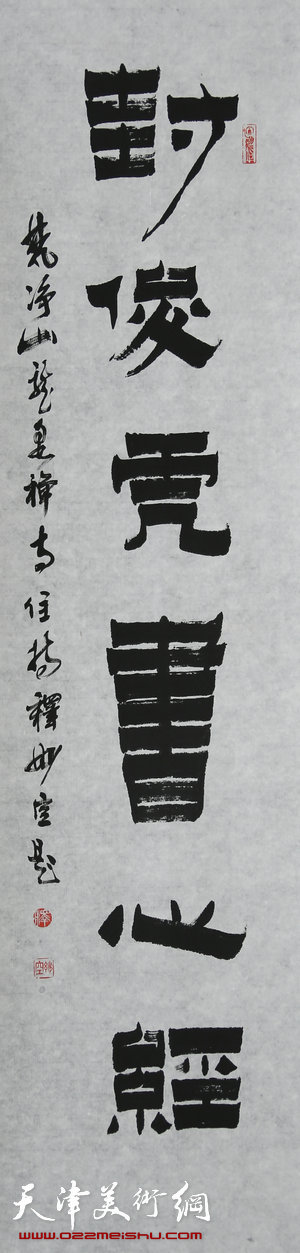 封俊虎書心經
梵淨山龍泉禅寺住持釋妙空題
妙空
天津美術網
www.022meishu.com